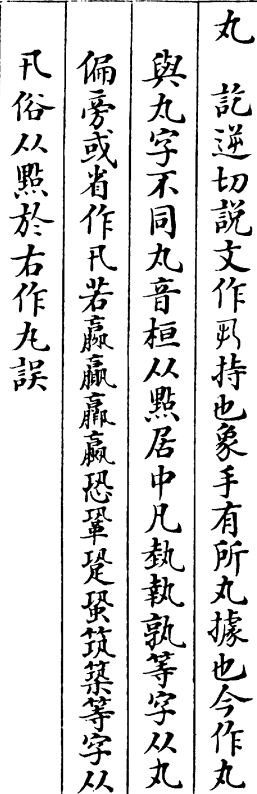 丸　訖逆切說文作𠃨持也象手有所丸據也今作丸
與丸字不同丸音桓从點居中凡埶執孰等字从丸
偏旁或省作卂若羸贏臝嬴恐鞏跫蛩筑築等字从
卂俗从點於右作丸誤